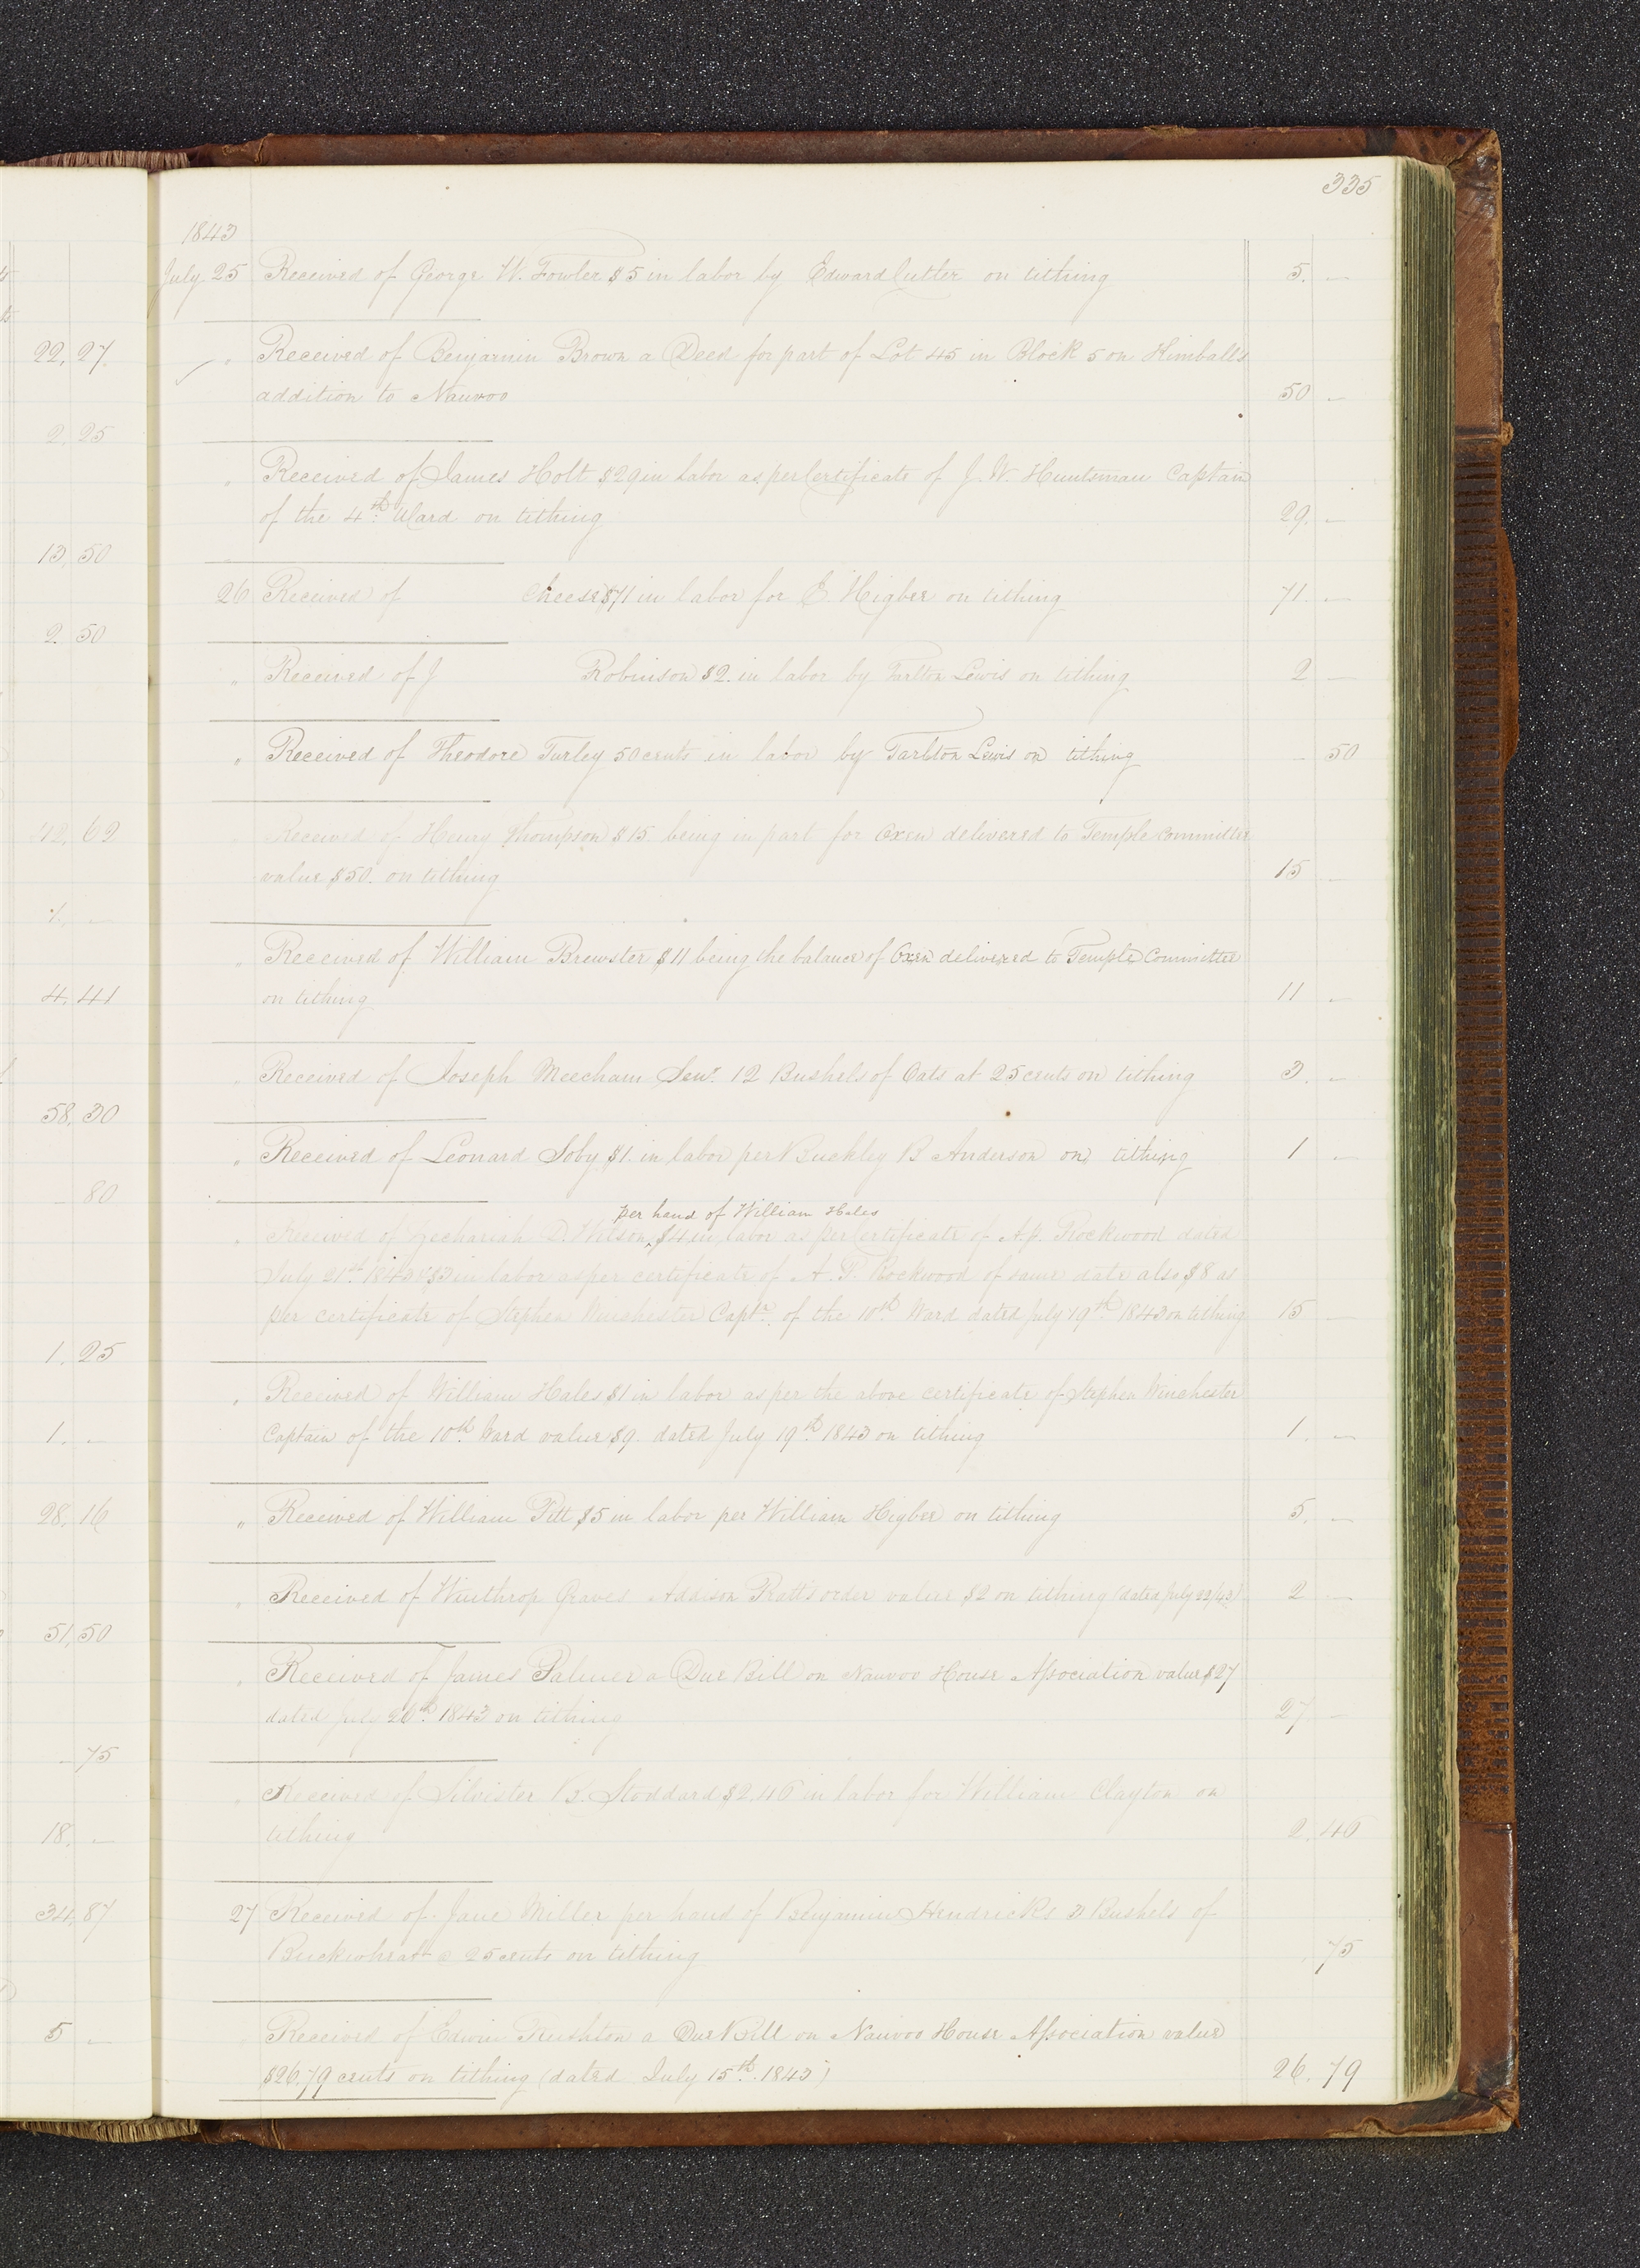 335
1843
July 25 Received of George W. Fowler $5 in labor by Edward Cutler on tithing 5. —
22. 27 " Received of Benjamin Brown a Deed for part of Lot 45 in Block 5 on Kimballs
addition to Nauvoo 50 —
2. 25
" Received of James Holt $29 in labor as per Certificate of J. W. Huntsman Captain
of the 4th Ward on tithing 29. —
13. 50
26 Received of Cheese $71 in labor for E. Higbee on tithing 71. —
2. 50
" Received of J Robinson $2. in labor by Tarlton Lewis on tithing 2 —
" Received of Theodore Turley 50 cents in labor by Tarlton Lewis on tithing - 50
42. 62 " Received of Henry Thompson $15. being in part for Oxen delivered to Temple Committee
value $50. on tithing 15 —
" Received of William Brewster $11 being the balance of Oxen delivered to Temple Committee
4. 41 on tithing 11 —
" Received of Joseph Meecham Senr. 12 Bushels of Oats at 25 cents on tithing 3. —
58. 30
" Received of Leonard Soby $1. in labor per Buckley B Anderson on tithing 1 —
- 80
per hand of William Hales
" Received of Zechariah D. Wilson ^ $4 in labor as per Certificate of A. P. Rockwood dated
July 21st 1843 & $3 in labor as per certificate of A. P. Rockwood of same date also $8 as
per certificate of Stephen Winchester Captn. of the 10th Ward dated July 19th 1843 on tithing 15 —
1. 25
" Received of William Hales $1 in labor as per the above certificate of Stephen Winchester
1. - Captain of the 10th Ward value $9. dated July 19th 1843 on tithing 1. —
28. 16 " Received of William Pitt $5 in labor per William Higbee on tithing 5. —
" Received of Winthrop Graves Addison Pratts order value $2 on tithing (dated July 22/43) 2 —
51. 50
" Received of James Palmer a Due Bill on Nauvoo House Association value $27
dated July 26th 1843 on tithing 27 —
- 75
" Received of Silvister B. Stoddard $2.46 in labor for William Clayton on
18. - tithing 2. 46
34. 87 27 Received of Jane Miller per hand of Benjamin Hendricks 3 Bushels of
Buckwheat @ 25 cents on tithing . 75
5 - Received of Edwin Rushton a Due Bill on Nauvoo House Association value
$26.79 cents on tithing (dated July 15th. 1843) 26. 79